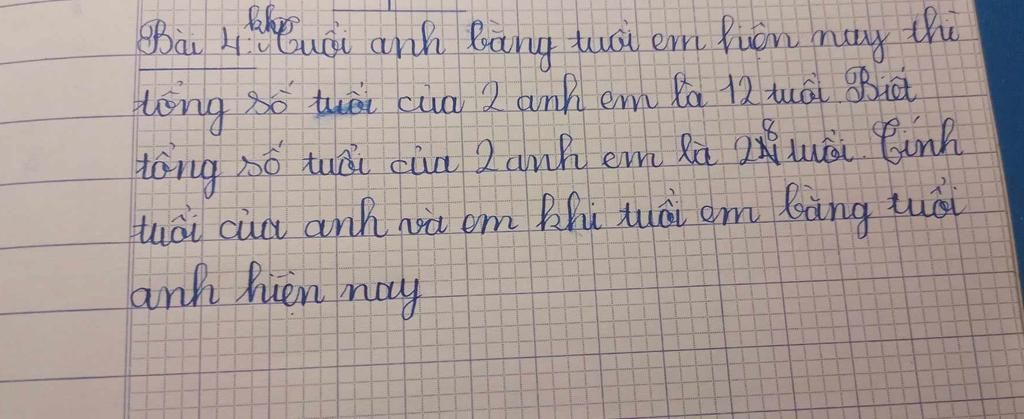 Bài 4: khi tuổi anh bằng tuổi em hiện nay thì
tổng số tuổi của 2 anh em là 12 tuổi. Biết
tổng số tuổi của 2 anh em là 28 tuổi. Tính
tuổi của anh và em khi tuổi em bằng tuổi
anh hiện nay